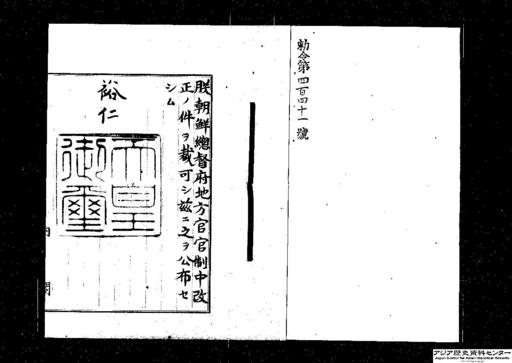 勅令第四百四十一號
朕朝鮮總督府地方官官制中改
正ノ件ヲ裁可シ茲ニ之ヲ公布セ
シム
裕仁
天皇
御璽
内
閣
アジア歴史資料センター
Japan Center for Asian Historical Records